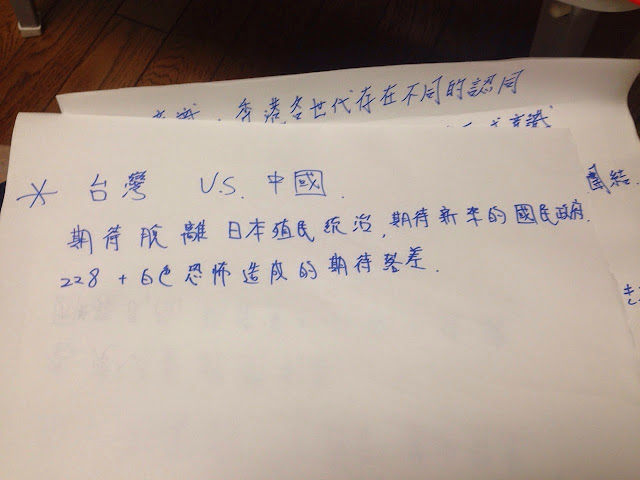 香港各世代存在不同的認同
* 台灣 V.S. 中國.
團結.
期待脫離日本殖民統治, 期待新來的國民政府.
228 + 白色恐怖造成的期待落差.